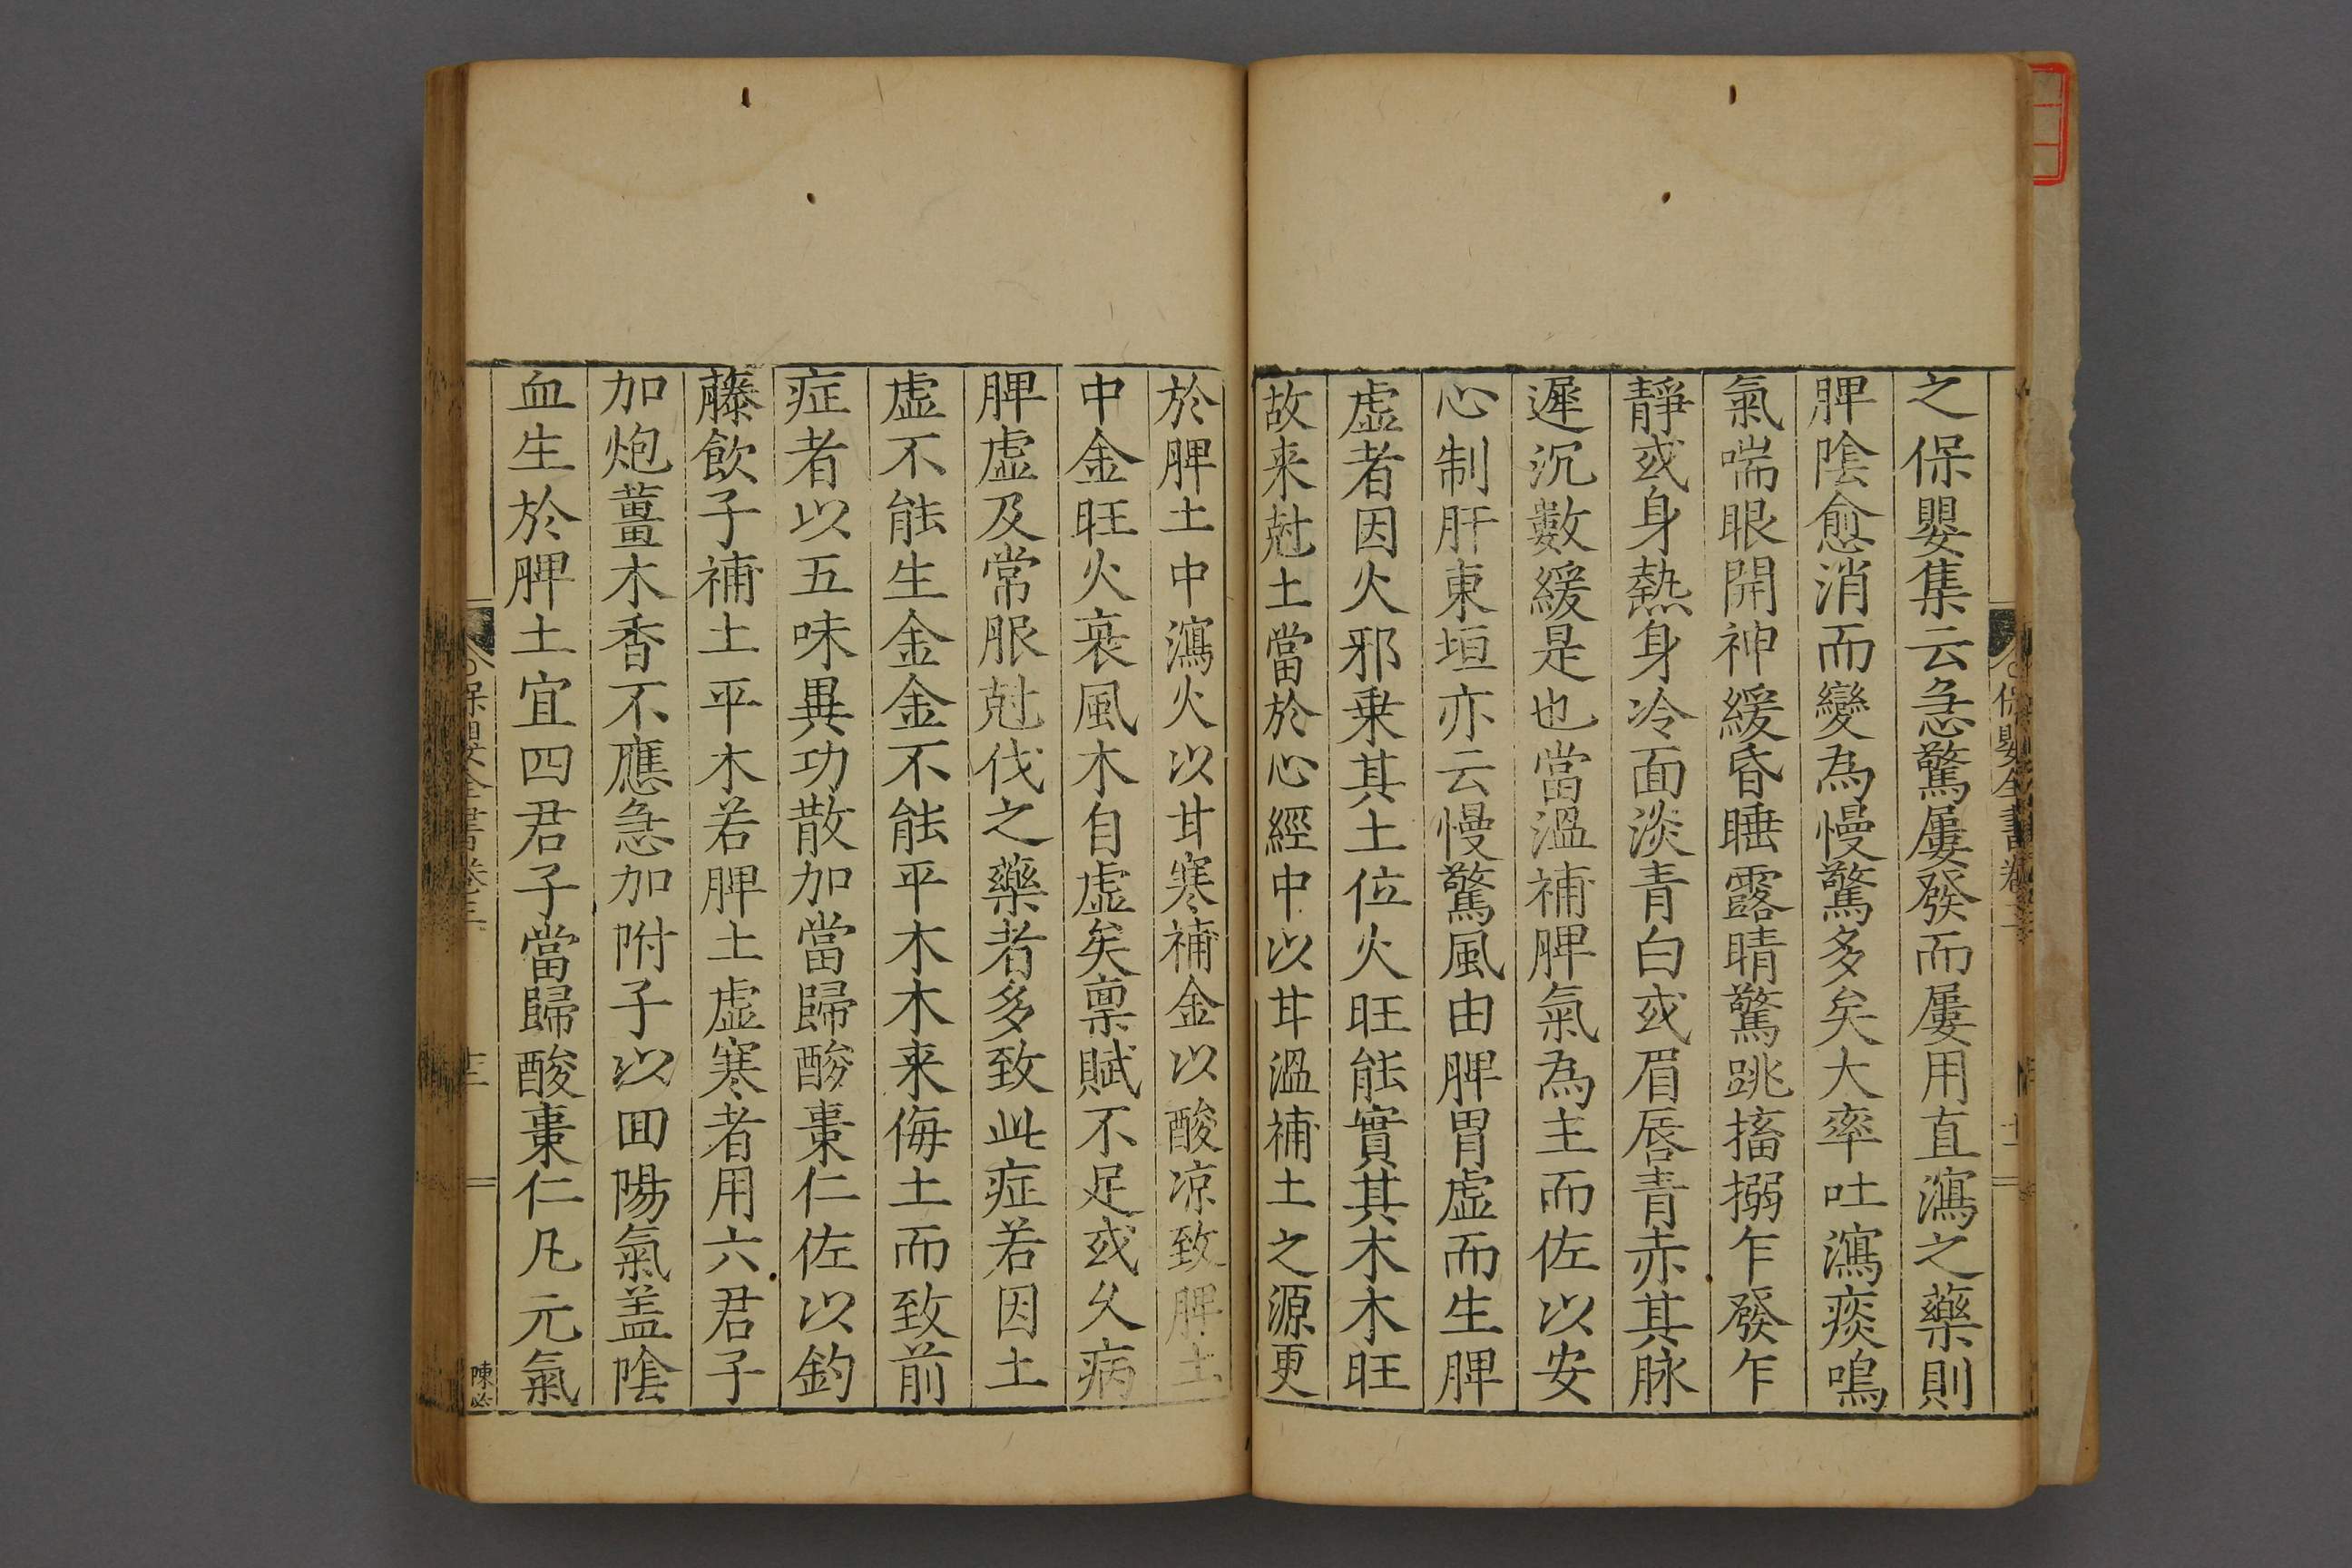 之保嬰集云急驚屢發而屢用直瀉之藥則
脾陰愈消而變為慢驚多矣大率吐瀉痰鳴
氣喘眼開神緩昏睡露睛驚跳搐搦乍發乍
靜或身熱身冷面淡青白或眉唇青赤其脉
遲沉數緩是也當溫補脾氣為主而佐以安
心制肝東垣亦云慢驚風由脾胃虛而生脾
虛者因火邪乗其土位火旺能實其木木旺
故来尅土當於心經中以甘溫補土之源更
於脾土中瀉火以甘寒補金以酸凉致脾土
中金旺火衰風木自虛矣禀賦不足或久病
脾虛及常服尅伐之藥者多致此症若因土
虛不能生金金不能平木木来侮土而致前
症者以五味異功散加當歸酸棗仁佐以釣
藤飲子補土平木若脾土虛寒者用六君子
加炮薑木香不應急加附子以囬陽氣盖陰
血生於脾土宜四君子當歸酸棗仁凡元氣
保嬰全書卷三
十三
陳必